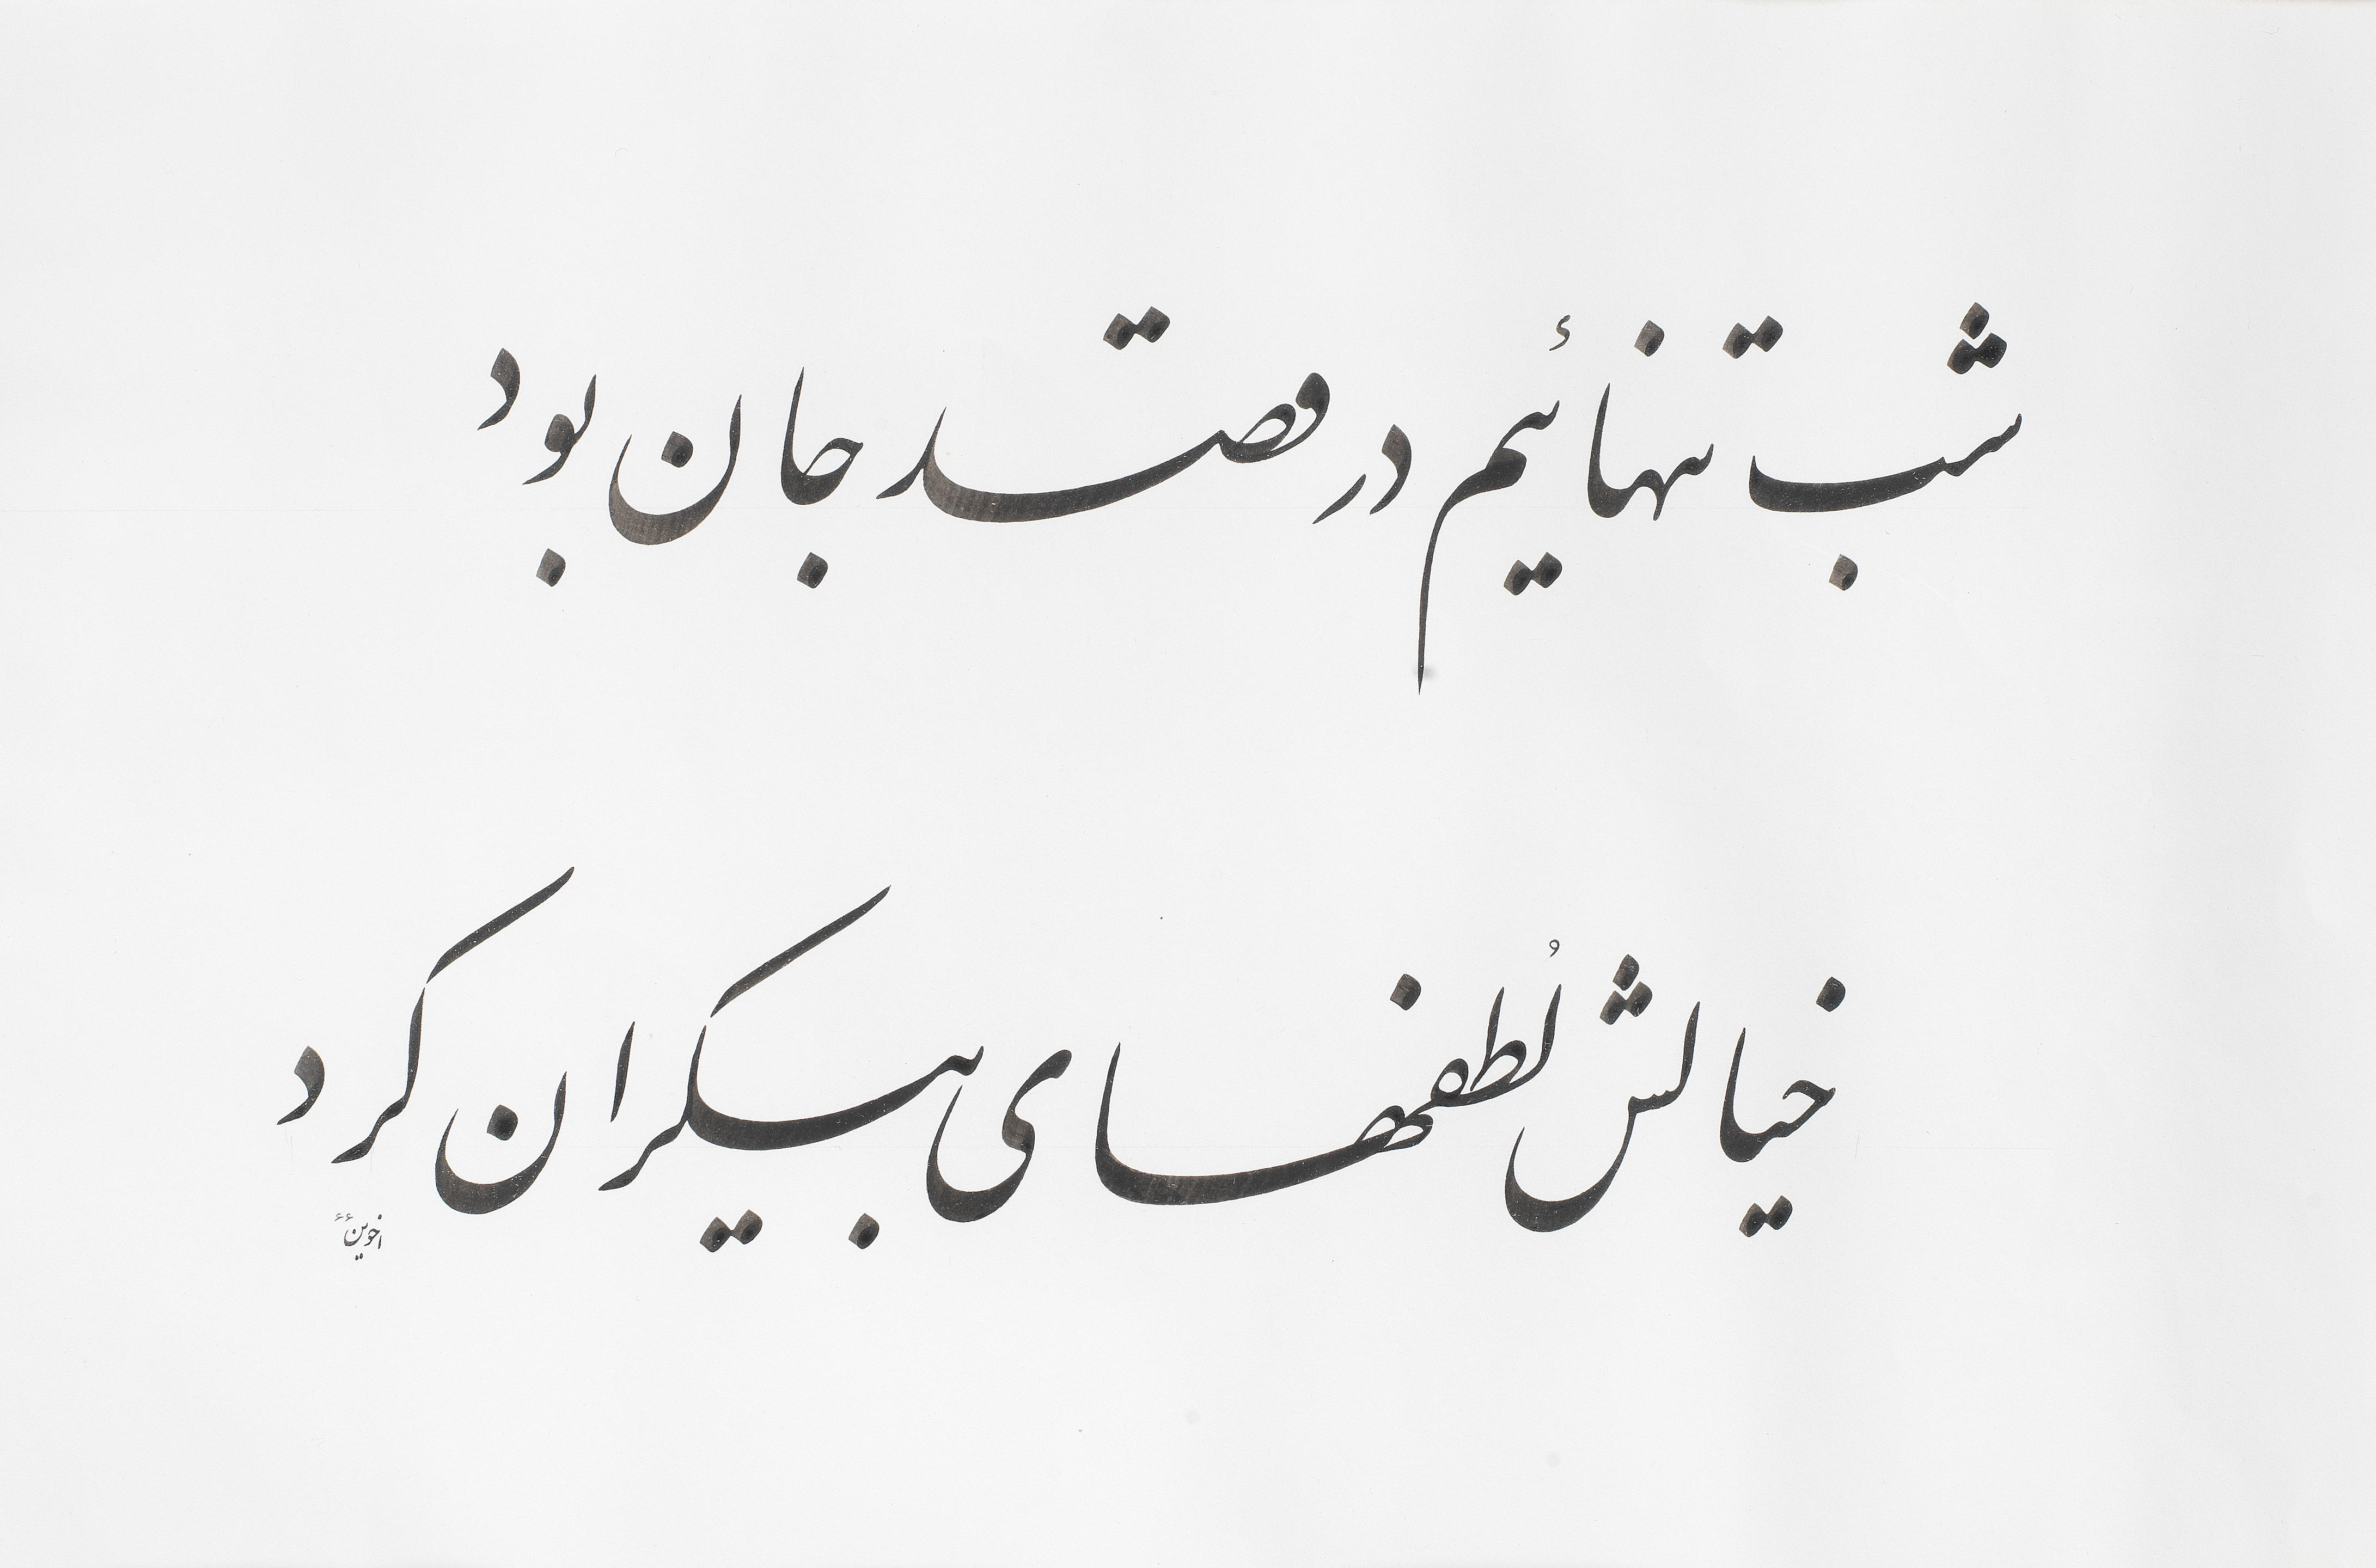 شب تنهائیم در قصد جان بود
خیالش لُطفهای بیکران کرد
اخوین ۶۶